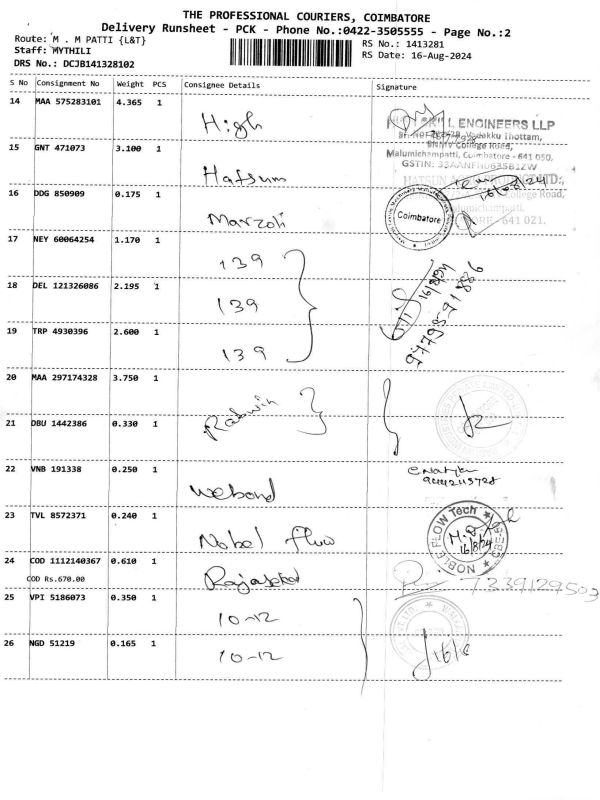 THE PROFESSIONAL COURIERS, COIMBATORE
Delivery Runsheet - PCK - Phone No.:0422-3505555 - Page No.:2
Route: M . M PATTI {L&T}
RS No.: 1413281
Staff: MYTHILI
RS Date: 16-Aug-2024
DRS No.: DCJB141328102
S No Consignment No Weight PCS Consignee Details Signature
14 MAA 575283101 4.365 1 High
ENGINEERS LLP
Vadakku Thottam,
College Road,
Malumichampatti, Coimbatore - 641 050.
15 GNT 471073 3.100 1 Hatsum
16/08/24
College Road,
Malumichampatti,
641 021.
16 DDG 850909 0.175 1 Marzoli
Coimbatore
17 NEY 60064254 1.170 1 139
18 DEL 121326086 2.195 1 139
16/8/24
19 TRP 4930396 2.600 1 139
20 MAA 297174328 3.750 1
21 DBU 1442386 0.330 1
22 VNB 191338 0.250 1 webond
23 TVL 8572371 0.240 1 Nobel flow
NOBLE FLOW Tech
16/8/24
24 COD 1112140367 0.610 1
COD Rs.670.00
7339129503
25 VPI 5186073 0.350 1 10-12
26 NGD 51219 0.165 1 10-12
16/8